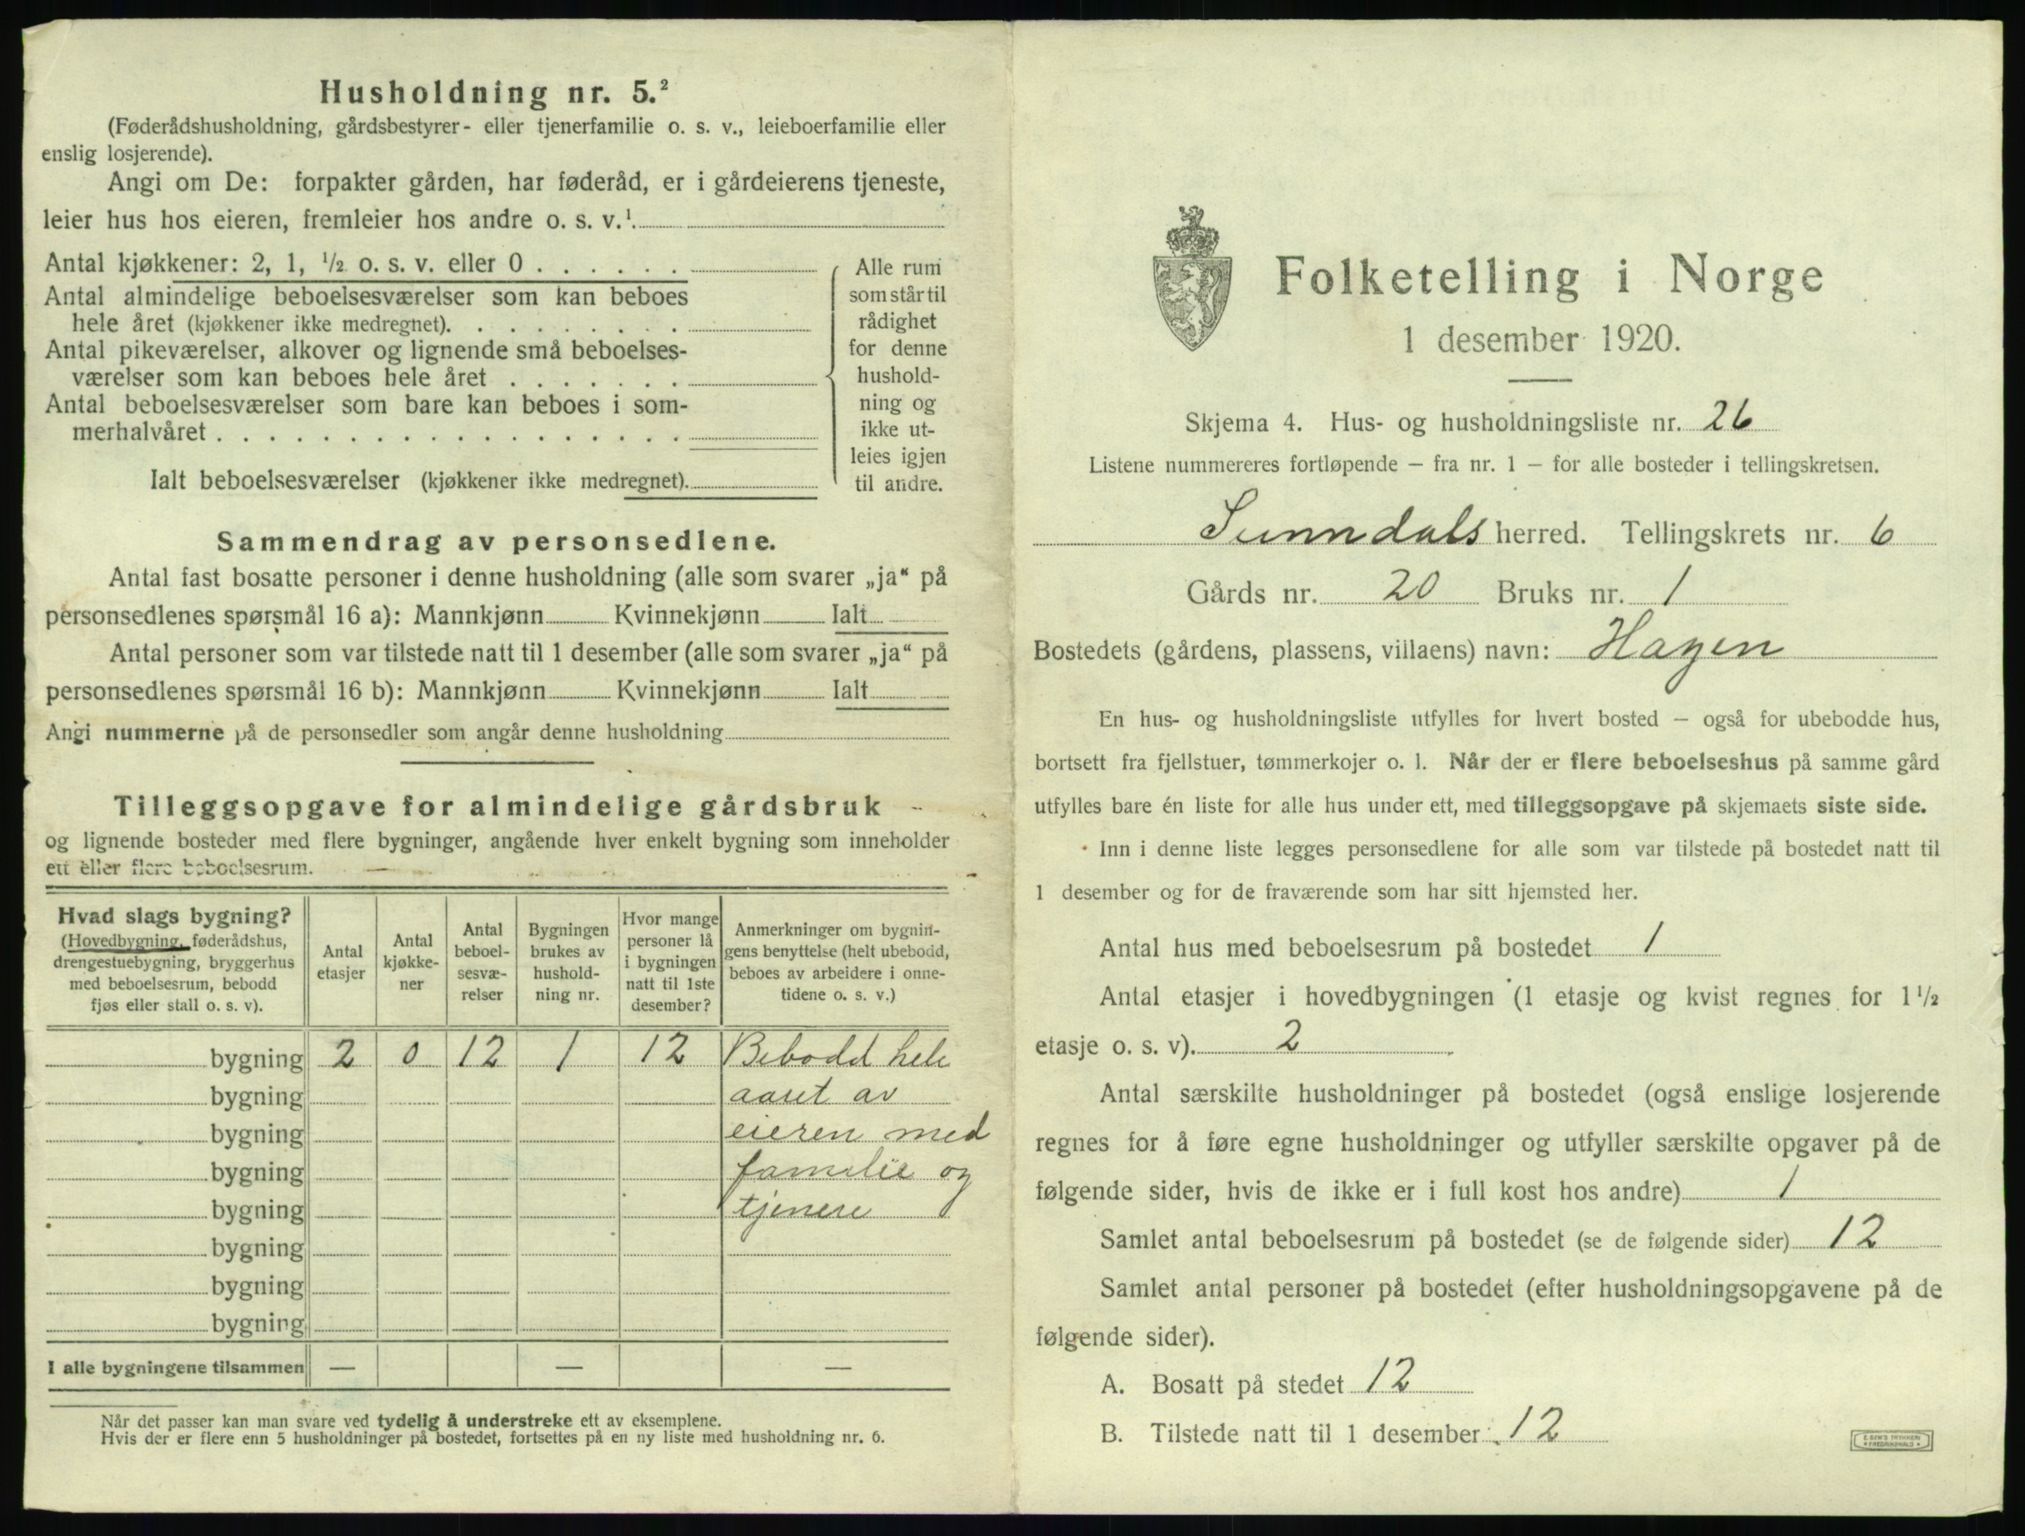 Husholdning nr. 5.²
(Føderådshusholdning, gårdsbestyrer- eller tjenerfamilie o. s. v., leieboerfamilie eller
enslig losjerende).
Angi om De: forpakter gården, har føderåd, er i gårdeierens tjeneste,
leier hus hos eieren, fremleier hos andre o. s. v.¹
Antal kjøkkener: 2, 1, ½ o. s. v. eller 0 . . . . . .
Antal almindelige beboelsesværelser som kan beboes
hele året (kjøkkener ikke medregnet). . . . . . . . .
Antal pikeværelser, alkover og lignende små beboelses-
værelser som kan beboes hele året . . . . . . .
Antal beboelsesværelser som bare kan beboes i som-
merhalvåret . . . . . . . . . . . . . . . . . .
Ialt beboelsesværelser (kjøkkener ikke medregnet).
Alle rum
som står til
rådighet
for denne
hushold-
ning og
ikke ut-
leies igjen
til andre.
Sammendrag av personsedlene.
Antal fast bosatte personer i denne husholdning (alle som svarer „ja“ på
personsedlenes spørsmål 16 a): Mannkjønn Kvinnekjønn Ialt
Antal personer som var tilstede natt til 1 desember (alle som svarer „ja“ på
personsedlenes spørsmål 16 b): Mannkjønn Kvinnekjønn Ialt
Angi nummerne på de personsedler som angår denne husholdning
Tilleggsopgave for almindelige gårdsbruk
og lignende bosteder med flere bygninger, angående hver enkelt bygning som inneholder
ett eller flere beboelsesrum.
Hvad slags bygning?
(Hovedbygning, føderådshus,
drengestuebygning, bryggerhus
med beboelsesrum, bebodd
fjøs eller stall o. s. v).
Antal
etasjer
Antal
kjøkke-
ner
Antal
beboel-
sesvæ-
relser
Bygningen
brukes av
hushold-
ning nr.
Hvor mange
personer lå
i bygningen
natt til 1ste
desember?
Anmerkninger om bygnin-
gens benyttelse (helt ubebodd,
beboes av arbeidere i onne-
tidene o. s. v.)
bygning 2 0 12 1 12 Bebodd hele
bygning aaret av
bygning eieren med
bygning familie og
bygning tjenere
bygning
bygning
bygning
I alle bygningene tilsammen — — —
Når det passer kan man svare ved tydelig å understreke ett av eksemplene.
Hvis der er flere enn 5 husholdninger på bostedet, fortsettes på en ny liste med husholdning nr. 6.
Folketelling i Norge
1 desember 1920.
Skjema 4. Hus- og husholdningsliste nr. 26
Listene nummereres fortløpende – fra nr. 1 – for alle bosteder i tellingskretsen.
Sunndals herred. Tellingskrets nr. 6
Gårds nr. 20 Bruks nr. 1
Bostedets (gårdens, plassens, villaens) navn: Hagen
En hus- og husholdningsliste utfylles for hvert bosted – også for ubebodde hus,
bortsett fra fjellstuer, tømmerkojer o. l. Når der er flere beboelseshus på samme gård
utfylles bare én liste for alle hus under ett, med tilleggsopgave på skjemaets siste side.
Inn i denne liste legges personsedlene for alle som var tilstede på bostedet natt til
1 desember og for de fraværende som har sitt hjemsted her.
Antal hus med beboelsesrum på bostedet 1
Antal etasjer i hovedbygningen (1 etasje og kvist regnes for 1½
etasje o. s. v). 2
Antal særskilte husholdninger på bostedet (også enslige losjerende
regnes for å føre egne husholdninger og utfyller særskilte opgaver på de
følgende sider, hvis de ikke er i full kost hos andre) 1
Samlet antal beboelsesrum på bostedet (se de følgende sider) 12
Samlet antal personer på bostedet (efter husholdningsopgavene på de
følgende sider).
A. Bosatt på stedet 12
B. Tilstede natt til 1 desember 12